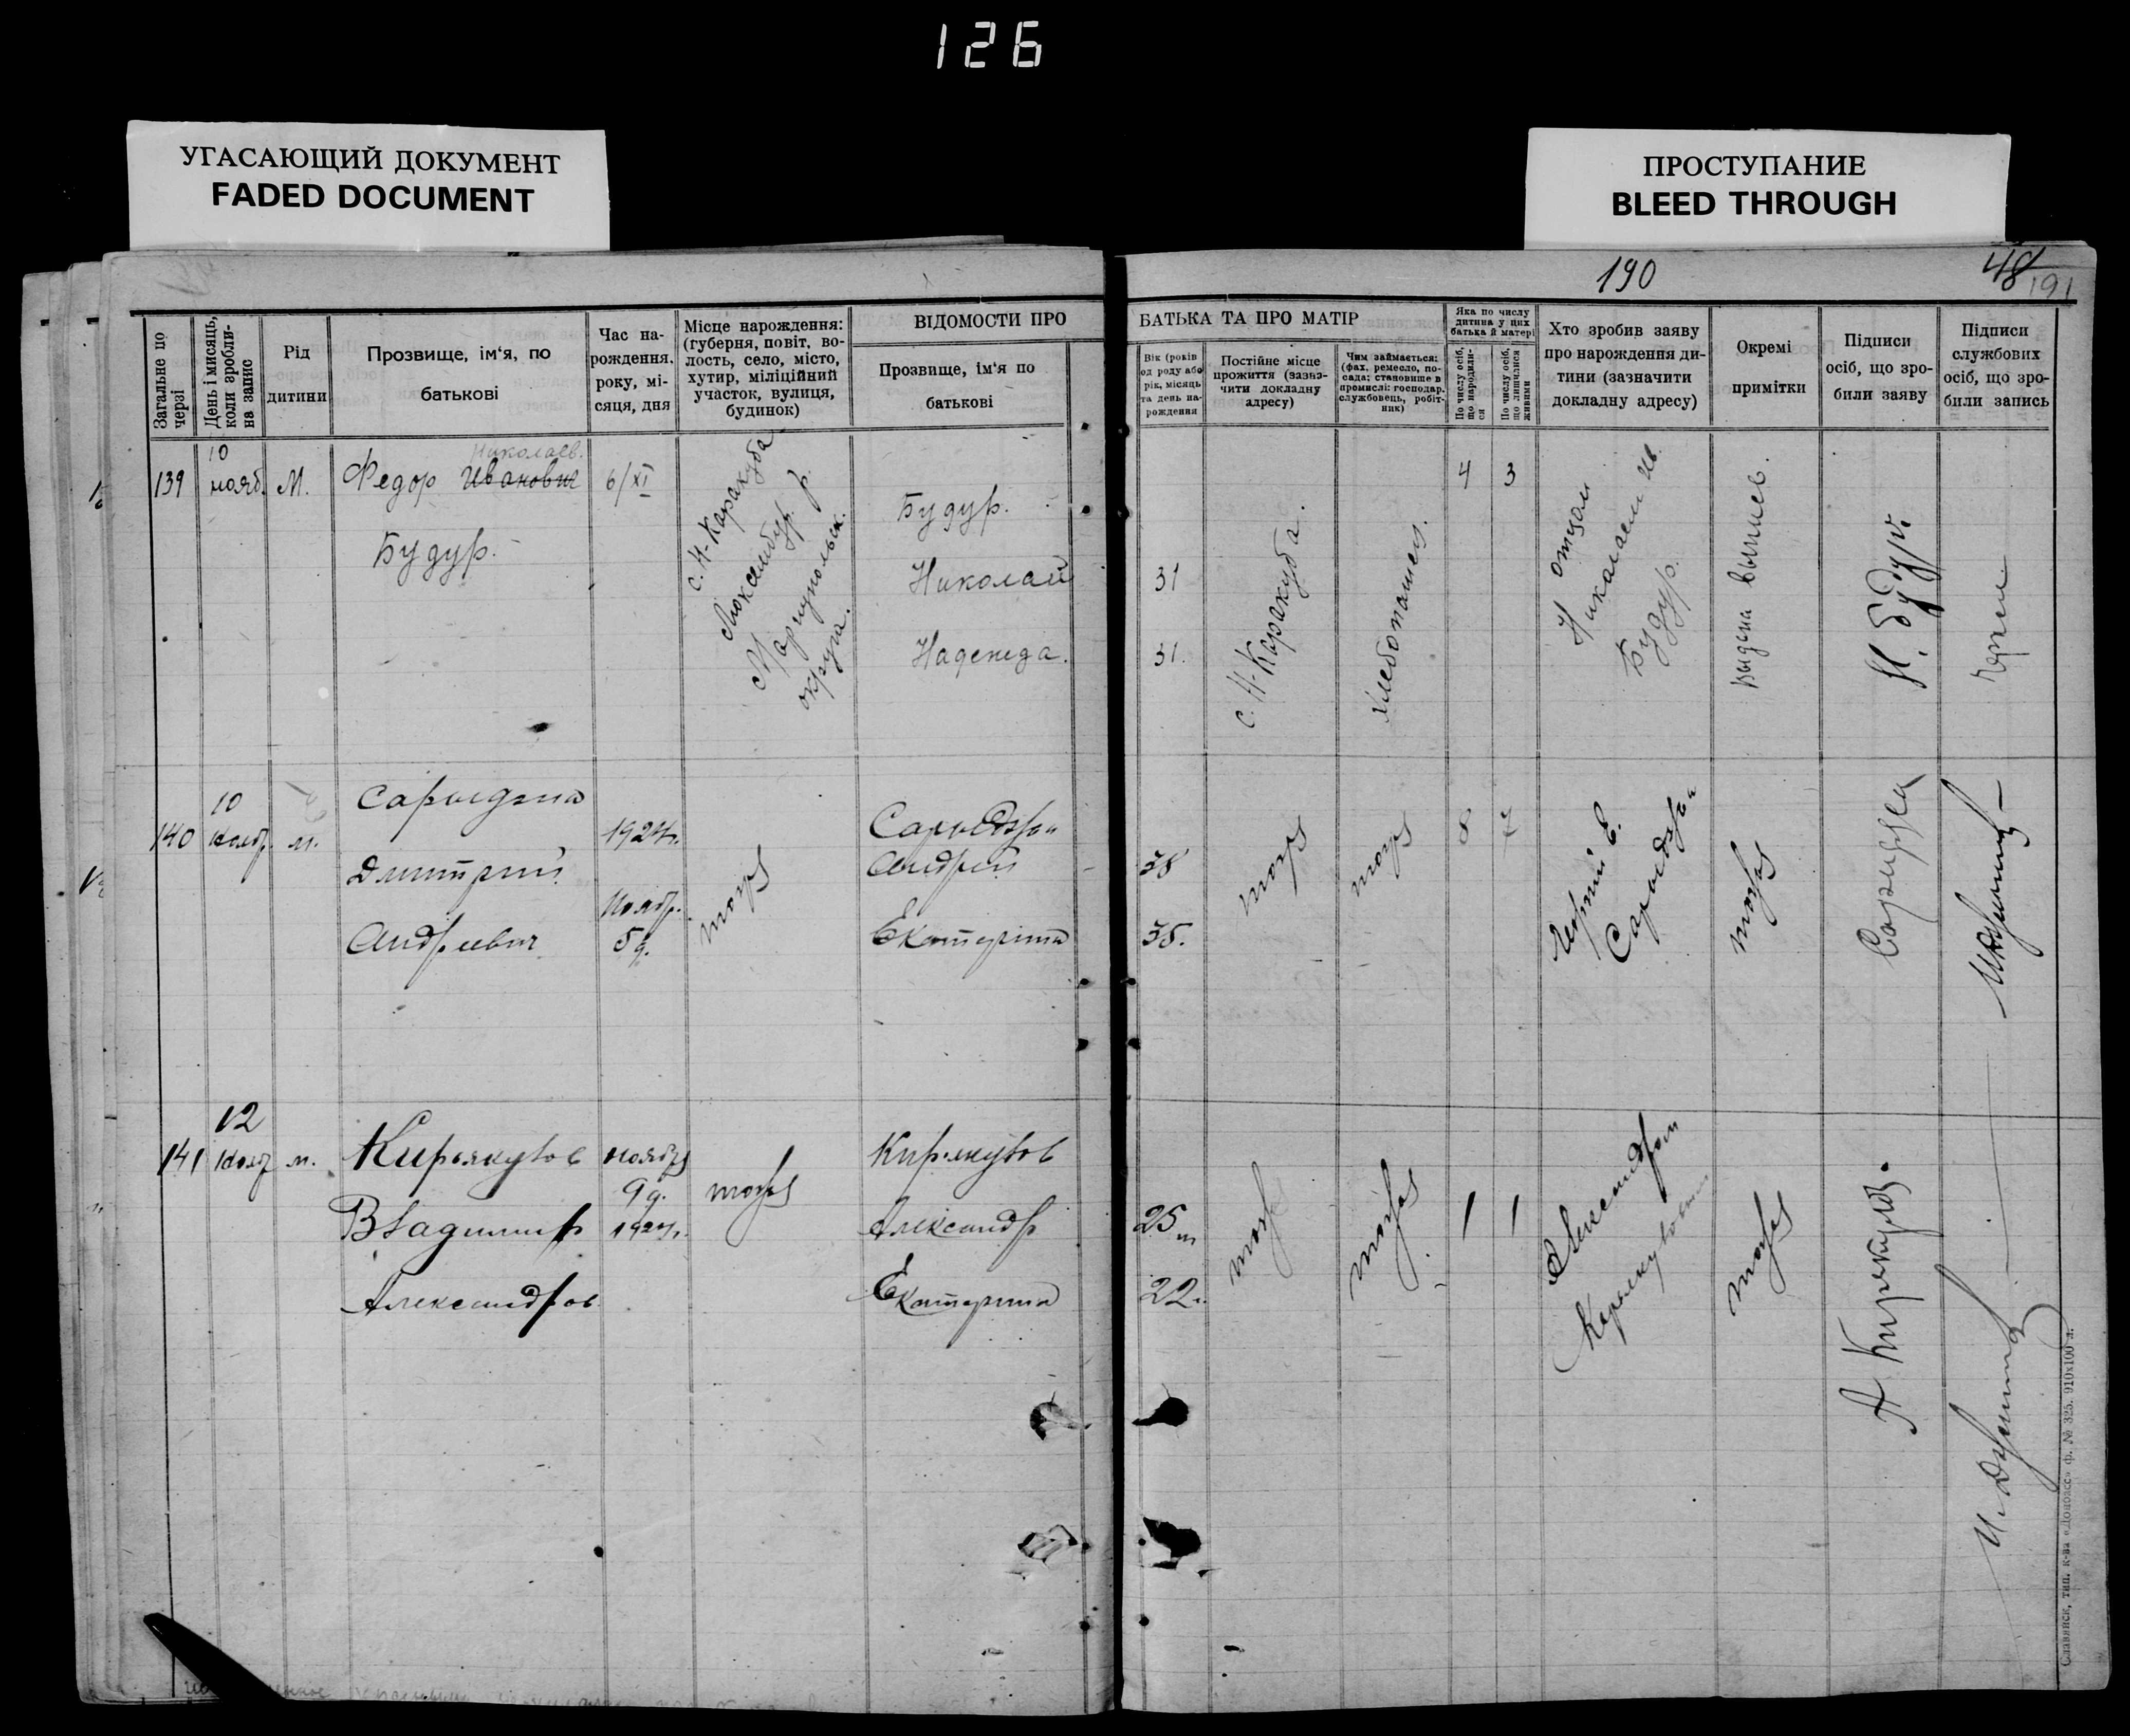 126
УГАСАЮЩИЙ ДОКУМЕНТ
FADED DOCUMENT
ПРОСТУПАНИЕ
BLEED THROUGH
190
48
191
Загальне по черзі
День і мисяць, коли зробли- на запис
Рід
дитини
Прозвище, ім'я, по
батькові
Час на-
рождення.
року, мі-
сяця, дня
Місце нарождення:
(губерня, повіт, во-
лость, село, місто,
хутир, міліційний
участок, вулиця,
будинок)
ВІДОМОСТИ ПРО
Прозвище, ім'я по
батькові
БАТЬКА ТА ПРО МАТІР
Вік (років
од роду або
рік, місяць
та день на-
рождення
Постійне місце
прожиття (зазна-
чити докладну
адресу)
Чим займається:
(фах, ремесло, по-
сада; становише в
промислі: господар.
службовець, робіт-
ник)
Яка по числу
дитина у цих
батька й матері
По числу осіб,
що народили-
ся
По числу осіб,
що лишилися
живими
Хто зробив заяву
про нарождення ди-
тини (зазначити
докладну адресу)
Окремі
примітки
Підписи
осіб, що зро-
били заяву
Підписи
службових
осіб, що зро-
били запись
139
10
нояб.
М.
Николаев.
Федор Иванович
Будур.
6/XI
с. Н-Каракуба
Люксембур. р.
Мариупольск.
округа.
Будур.
Николай
Надежда.
31
31.
с. Н-Каракуба.
хлебопашец.
4
3
отцом
Николаем Ив.
Будур.
Выдана выпись.
Н. Будур.
140
10
Нояб.
м.
Сарыджа
Дмитрий
Андреевич
1924г.
Ноябр.
5 д.
тоже
Андрей
Екатерина
38
35.
тоже
тоже
8
тоже
141
12
Нояб
м.
Кирьякулов
Владимир
Александров
ноябр
9 д.
1924г.
тоже
Кирьякулов
Александр
Екатерина
25
22.
тоже
тоже
1
1
Александром
тоже
Славянск, тип. к-ва «Донбасс» ф. № 325. 910x100 л.